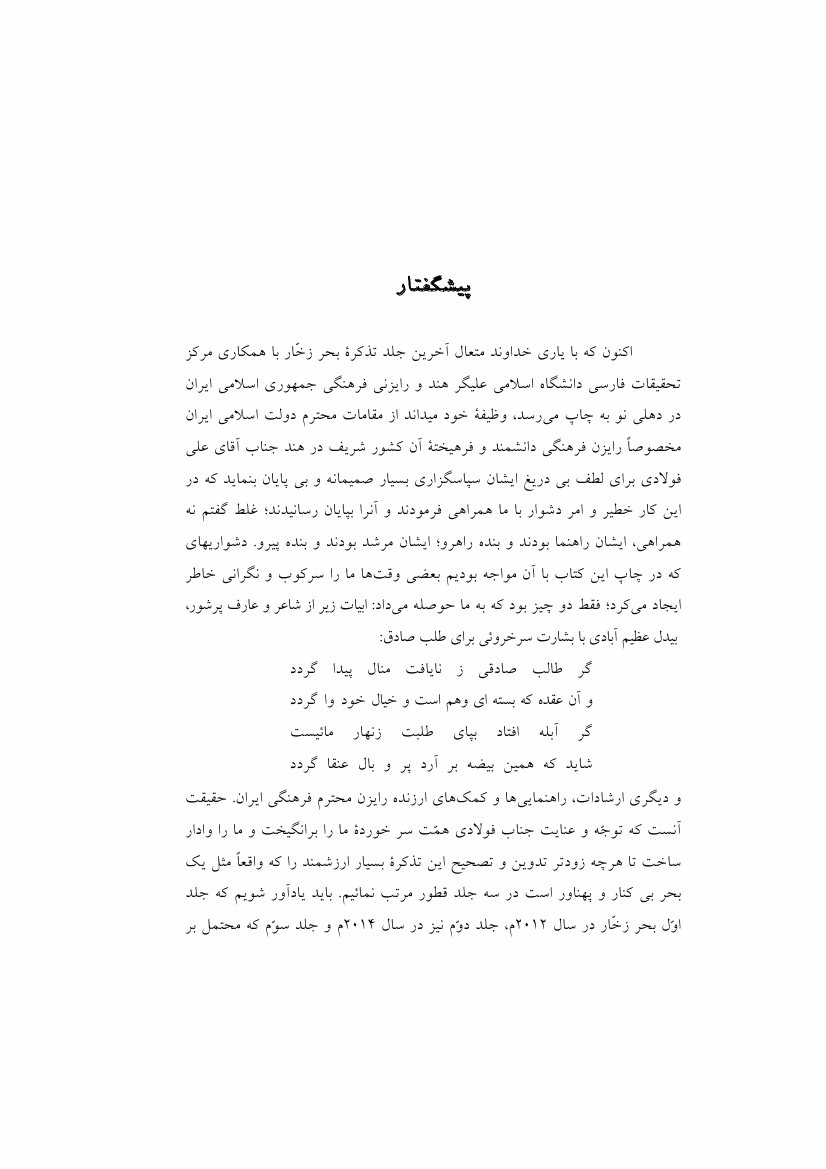 پیشگفتار
اکنون که با یاری خداوند متعال آخرین جلد تذکرهٔ بحر زخّار با همکاری مرکز
تحقیقات فارسی دانشگاه اسلامی علیگر هند و رایزنی فرهنگی جمهوری اسلامی ایران
در دهلی نو به چاپ می‌رسد، وظیفهٔ خود میداند از مقامات محترم دولت اسلامی ایران
مخصوصاً رایزن فرهنگی دانشمند و فرهیختهٔ آن کشور شریف در هند جناب آقای علی
فولادی برای لطف بی دریغ ایشان سپاسگزاری بسیار صمیمانه و بی پایان بنماید که در
این کار خطیر و امر دشوار با ما همراهی فرمودند و آنرا بپایان رسانیدند؛ غلط گفتم نه
همراهی، ایشان راهنما بودند و بنده راهرو؛ ایشان مرشد بودند و بنده پیرو. دشواریهای
که در چاپ این کتاب با آن مواجه بودیم بعضی وقت‌ها ما را سرکوب و نگرانی خاطر
ایجاد می‌کرد؛ فقط دو چیز بود که به ما حوصله می‌داد: ابیات زیر از شاعر و عارف پرشور،
بیدل عظیم آبادی با بشارت سرخروئی برای طلب صادق:
گر طالب صادقی ز نایافت منال پیدا گردد
و آن عقده که بسته ای وهم است و خیال خود وا گردد
گر آبله افتاد بپای طلبت زنهار مائیست
شاید که همین بیضه بر آرد پر و بال عنقا گردد
و دیگری ارشادات، راهنمایی‌ها و کمک‌های ارزنده رایزن محترم فرهنگی ایران. حقیقت
آنست که توجّه و عنایت جناب فولادی همّت سر خوردهٔ ما را برانگیخت و ما را وادار
ساخت تا هرچه زودتر تدوین و تصحیح این تذکرهٔ بسیار ارزشمند را که واقعاً مثل یک
بحر بی کنار و پهناور است در سه جلد قطور مرتب نمائیم. باید یادآور شویم که جلد
اوّل بحر زخّار در سال ۲۰۱۲م، جلد دوّم نیز در سال ۲۰۱۴م و جلد سوّم که محتمل بر